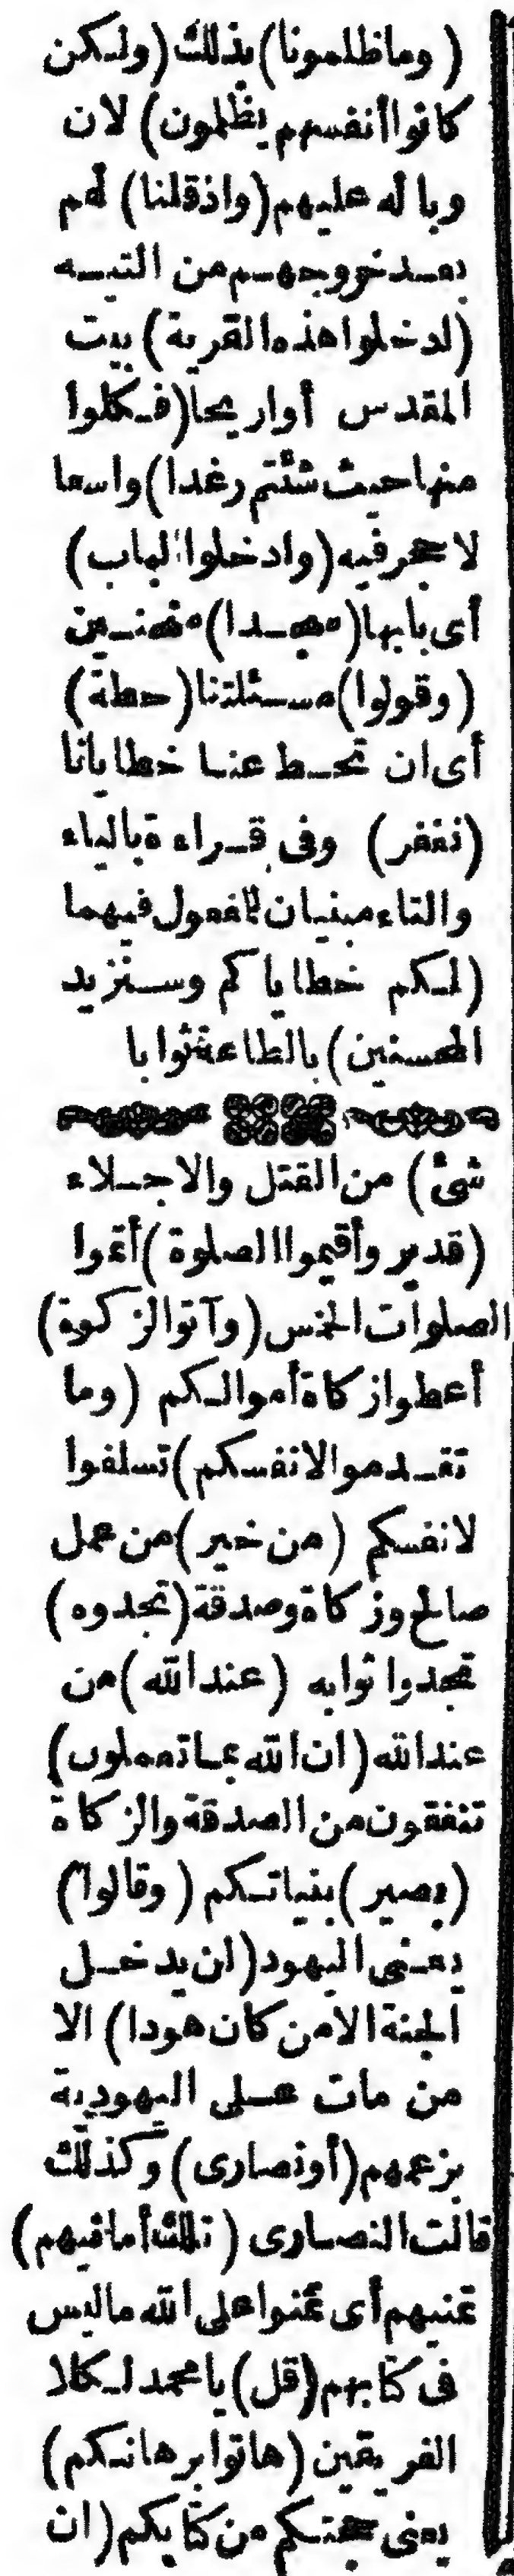 (وماظلمونا) بذلك (ولكن
كانوا أنفسهم يظلمون) لان
وباله عليهم (واذ قلنا) لهم
بعد خروجهم من التيه
(ادخلوا هذه القرية) بيت
المقدس أو أريحا (فكلوا
منها حيث شئتم رغدا) واسعا
لا حجر فيه (وادخلوا الباب)
أى بابها (سجدا) منحنين
(وقولوا) مسئلتنا (حطة)
أى ان تحط عنا خطايانا
(نغفر) وفى قراءة بالياء
والتاء مبنيان للمفعول فيهما
(لكم خطاياكم وسنزيد
المحسنين) بالطاعة ثوابا
شئ) من القتل والاجلاء
(قدير وأقيموا الصلوة) أتموا
الصلوات الخمس (وآتوا الزكوة)
أعطوا زكاة أموالكم (وما
تقدموا لانفسكم) تسلفوا
لانفسكم (من خير) من عمل
صالح وزكاة وصدقة (تجدوه)
تجدوا ثوابه (عند الله) من
عند الله (ان الله بما تعملون)
تنفقون من الصدقة والزكاة
(بصير) بنياتكم (وقالوا)
يعنى اليهود (لن يدخل
الجنة الا من كان هودا) الا
من مات على اليهودية
بزعمهم (أو نصارى) وكذلك
قالت النصارى (تلك أمانيهم)
تمنيهم أى تمنوا على الله ما ليس
فى كتابهم (قل) يا محمد لكلا
الفريقين (هاتوا برهانكم)
يعنى حجتكم من كتابكم (ان